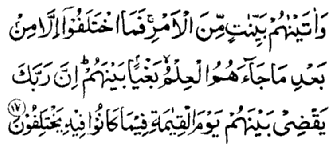 وَاٰتَيْنٰهُمْ بَيِّنٰتٍ مِّنَ الْاَمْرِ ۚ فَمَا اخْتَلَفُوْۤا اِلَّا مِنْۢ
بَعْدِ مَا جَآءَهُمُ الْعِلْمُ ۙ بَغْيًۢا بَيْنَهُمْ ؕ اِنَّ رَبَّكَ
يَقْضِىْ بَيْنَهُمْ يَوْمَ الْقِيٰمَةِ فِيْمَا كَانُوْا فِيْهِ يَخْتَلِفُوْنَ ﴿۱۷﴾